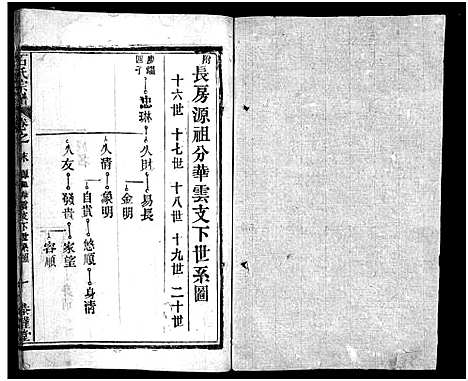 附
長房源祖分華雲支下世系圖
十六世 十七世 十八世 十九世 二十世
忠琳
四子
久財
易長
金明
久清
象明
自貴
悠順
身清
久友
發貴
家望
容順
氏宗譜
卷之
支下世系圖
一
堂